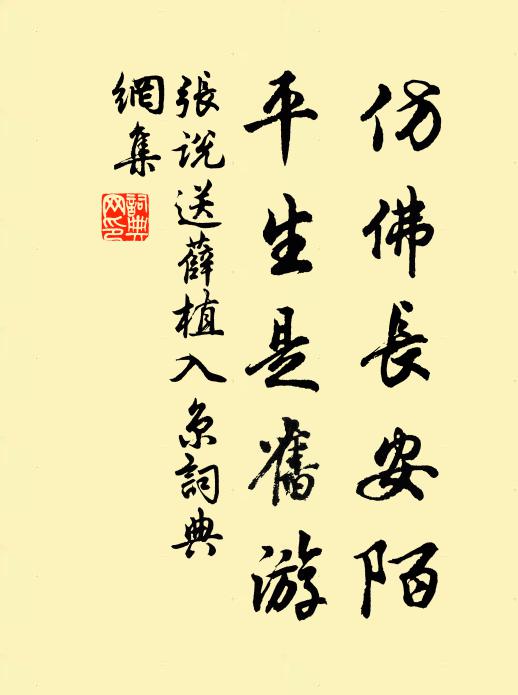 仿佛長安陌
平生是舊游
張説送薛植入京詞典
網集
詞典
网印